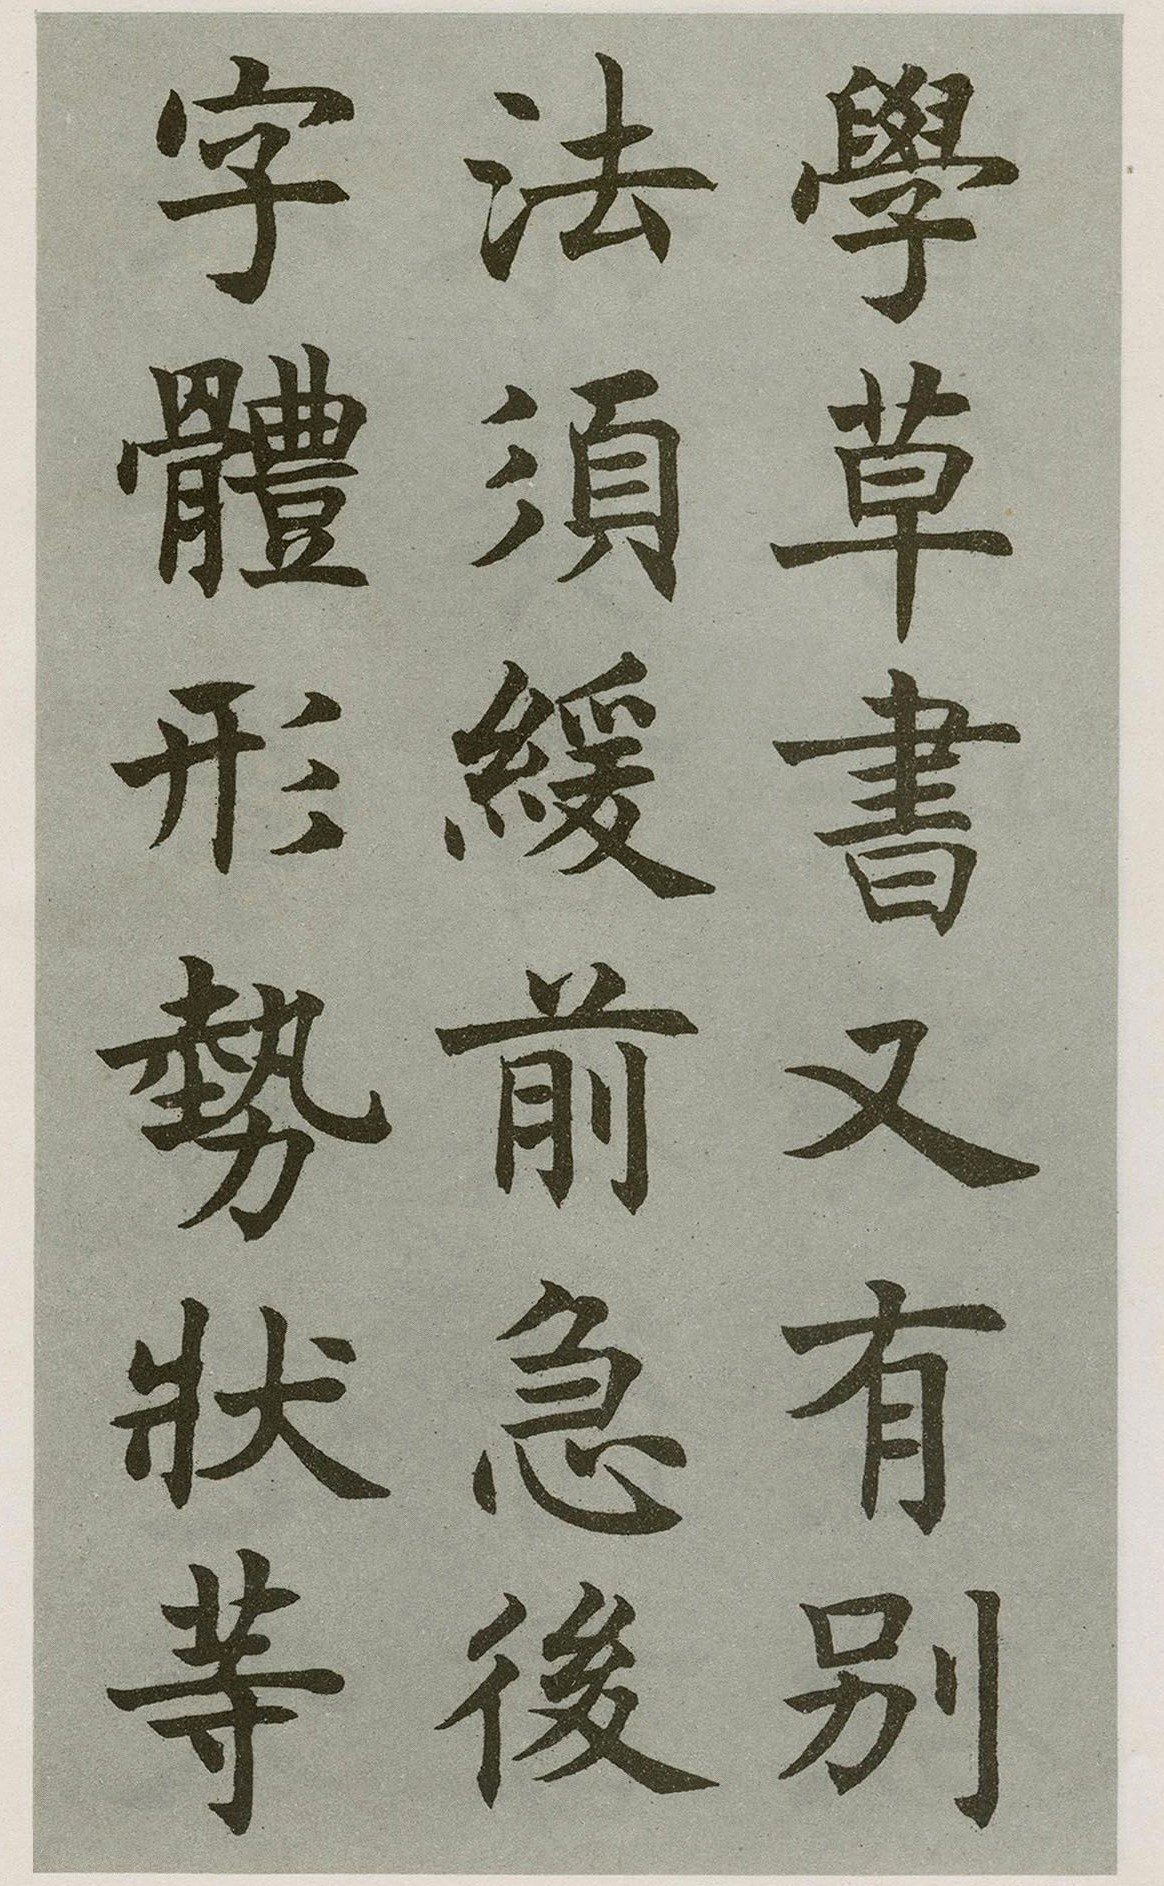 學草書又有别
法須緩前急後
字體形勢狀等